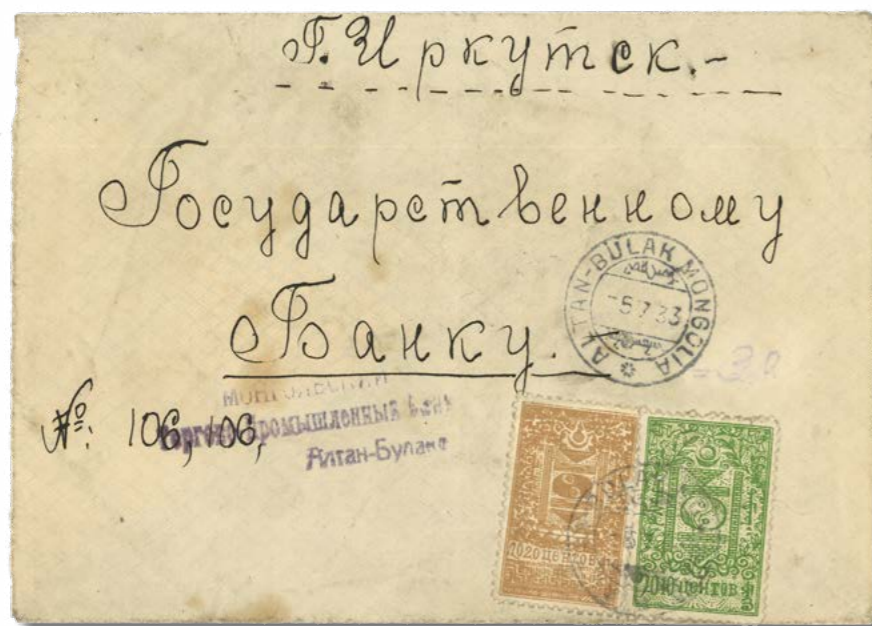 Г. Иркутск.-
Государственному
Банку.
ALTAN-BULAK MONGOLIA
-5 7 33
№: 106, 106,
МОНГОЛЬСКИЙ
Торгово-Промышленный Банк
Алтан-Булаке
1020 центов
2010 центов